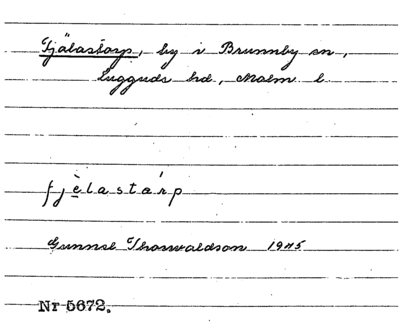 Fjälastorp, by i Brunnby sn,
Luggude hd, Malm l.
fjèlastárp
Gunnel Thorwaldson 1945
Nr 5672.